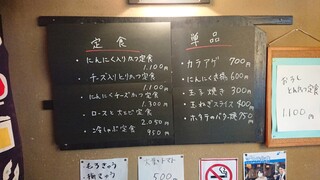 定食
・にんにく入りカツ定食
1.100円
・チーズ入りとりカツ定食
1.100円
・にんにくチーズカツ定食
1.300円
・ロースとえび定食
2.050円
・冷しゃぶ定食
950円
単品
・カラアゲ 700円
・にんにく 600円
・玉子焼き 300円
・玉ねぎスライス 400円
・ホタテのバター焼 750円
おろし
とんかつ定食
1.100円
もろきゅう
500円